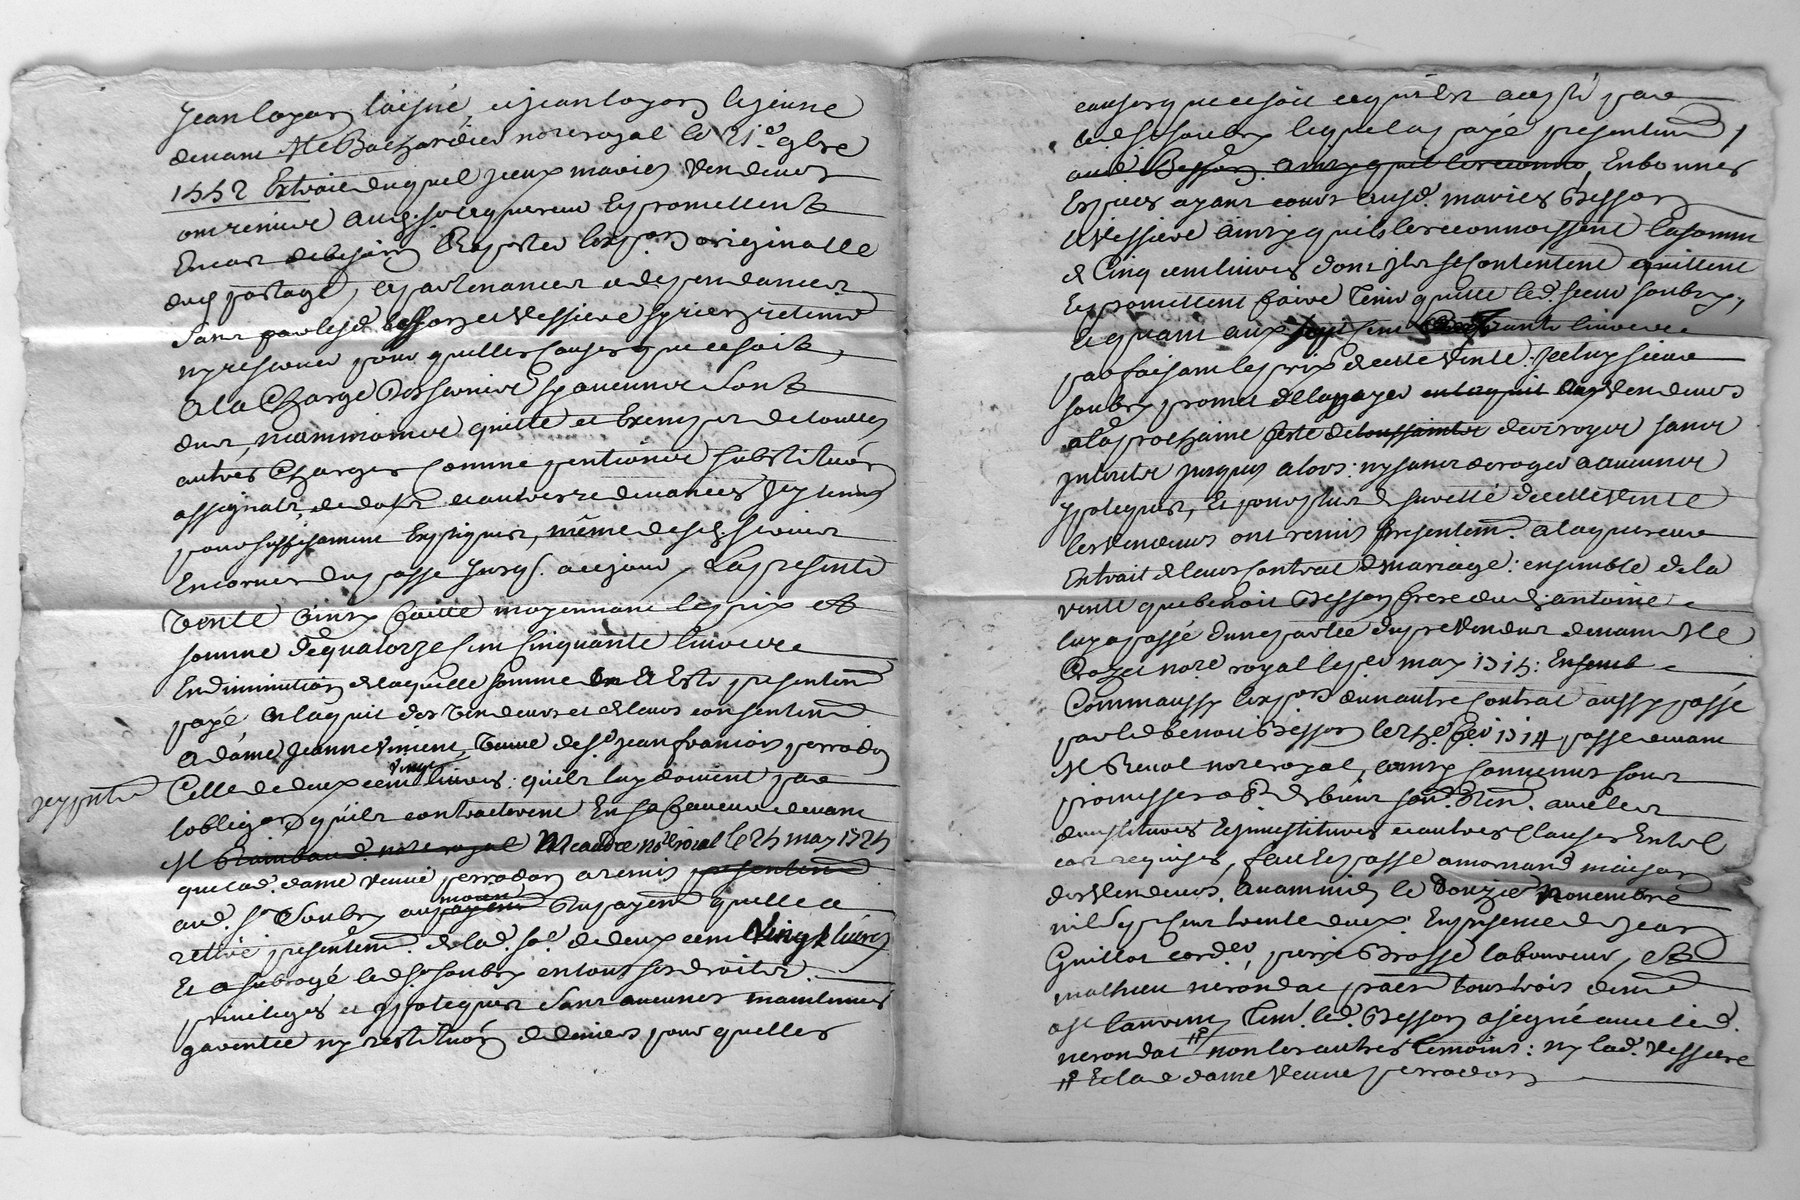 Jean loyon l'aisné et jean loyon lejeune
devant Me Bachardier nore royal le 21e 9bre
1552 Extraict duquel jceux mariés vendeurs
ont remier aud. sr acquereur Et promettent
En cas de besoin Rapporter lexpon originalle
dud partage, apartenances et dependances
Sans par lesd. Besson et Vessiere sy rien retenir
ny reserver pour quelles causes que ce soit,
A la Charge des servis sy aucuns sont
deus, neanmoings quitte et Exempt de touttes
autres Charges comme pentions substituon
assignalx, de dotx et autres redevances jcy tenus
pour suffisamment Expliques, même desd. servis
Encourus du passé jusqs. a ce jour, La presente
vente ainsy faitte moyennant le prix et
somme de quatorze cent cinquante livres
En diminution de laquelle somme En a Esté presentemt
payé a l'aquit des vendeurs et de leurs consentemt
a dame jeanne viment, veuve de sr jean francois perrodon
vingt
Celle de deux cent livres: quils luy doivent par
jcy pntte
lobligaon quils contracterent En sa faveur devant
Me Raimbaud nore royal Meaudre nre roial le 25 may 1725
que lad. dame veuve perrodon a remis presentemt
moien
aud. sr Soubry au payemt du payemt quelle a
retiré presentemt. de lad. se. de deux cent Vingt livres
Et a subrogé led. sr soubry en tous ses droits
privileges et ypoteques Sans aucunes maintenues
garentie ny restituon de deniers pour quelles
causes que ce soit ce qui Est accepté par
led. sr soubry lequel a payé presentemt,
aud. Besson. ainsy quil le reconnoi, En bonnes
Espèces ayant cours ausd. mariés Besson
et Vessiere ainsy quils le reconnoissent la somme
de Cinq cent livres dont jls se contentent quittent
Et promettent faire Tenir quitte led. sieur soubry,
Et quant aux sept cent trante livres
parfaisant le prix de cette vente: jceluy sieur
soubry promet de la payer en laquit des vendeurs
a la prochaine feste de toussainctes des royes sans
jnterets jusques alors: ny sans deroger a aucunes
ypoteques, Et pour plus de suretté de cette vente
les vendeurs ont remis presentemt. a laquereur
Extrait de leur contrat de mariage: ensemble de la
vente que benoit Besson frere dud. antoine
luy a passé d'une partie du prevendeur devant Me
Crozet nore royal le per may 1715: Ensemb
Comm aussy lexpon d'un autre contrat aussy passé
par led benoit Besson le 25e fev 1714 passé devant
Me Renal nore royal, ainsy convenus sous
promisses opon. de biens soun. Ren. avec leur
constitues Et jnstitues et autres clauses En tel
cas requises, fait Et passé a mornand maison
des Vendeurs. avant midy le Douzie Novembre
mil sept cent trente deux: En presence de jean
Guillot cord.er, pierre Brossé laboureur, et
mathieu nerondat praen tous trois demt
a st laurens, Tem. led. Besson a signé avec led.
nerondat # non les autres temoins: ny lad. Vessiere
# Et lad dame veuve perrodon